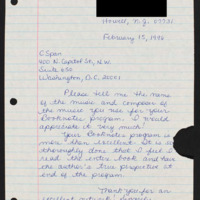 Howell, N.J. 07731
February 15, 1996
C-Span
400 N. Capitol St., N.W.
Suite 650
Washington, D.C. 20001
Please tell me the name
of the music and composer of
the music you use for your
Booknotes program. I would
appreciate it very much!
Your Booknotes program is
more than excellent. It is so
thoroughly done that I feel I
read the entire book and have
the author's true perspective at
end of the program.
Thank you for an
excellent network